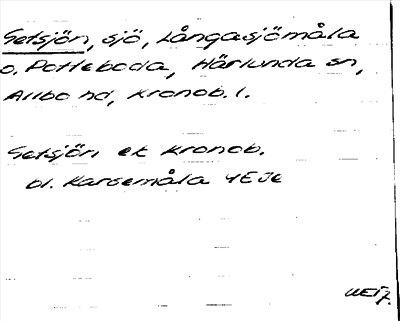 Getsjön, sjö, Långasjömåla
o. Potteboda, Härlunda sn,
Allbo hd, Kronob. l.
Getsjön ek Kronob.
bl. Karsemåla 4EJc